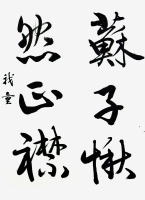 蘇子愀
然正襟
我童